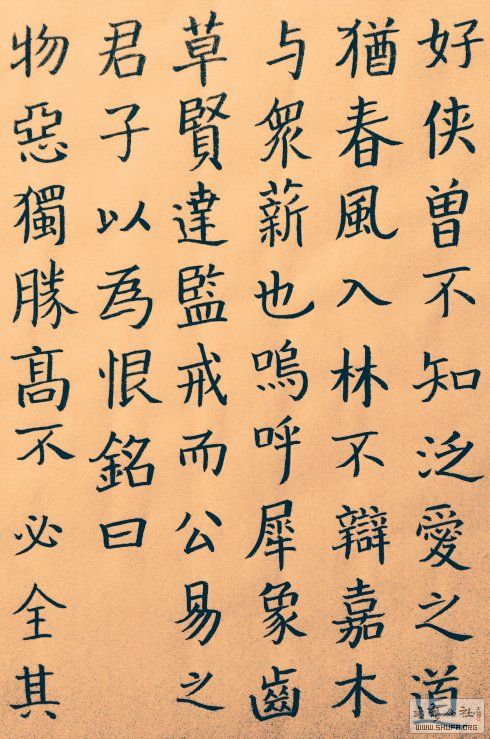 好侠曽不知泛愛之道
猶春風入林不辯嘉木
与衆薪也嗚呼犀象齒
草賢達監戒而公易之
君子以為恨銘曰
物惡獨勝髙不必全其
WWW.SHUFA.ORG